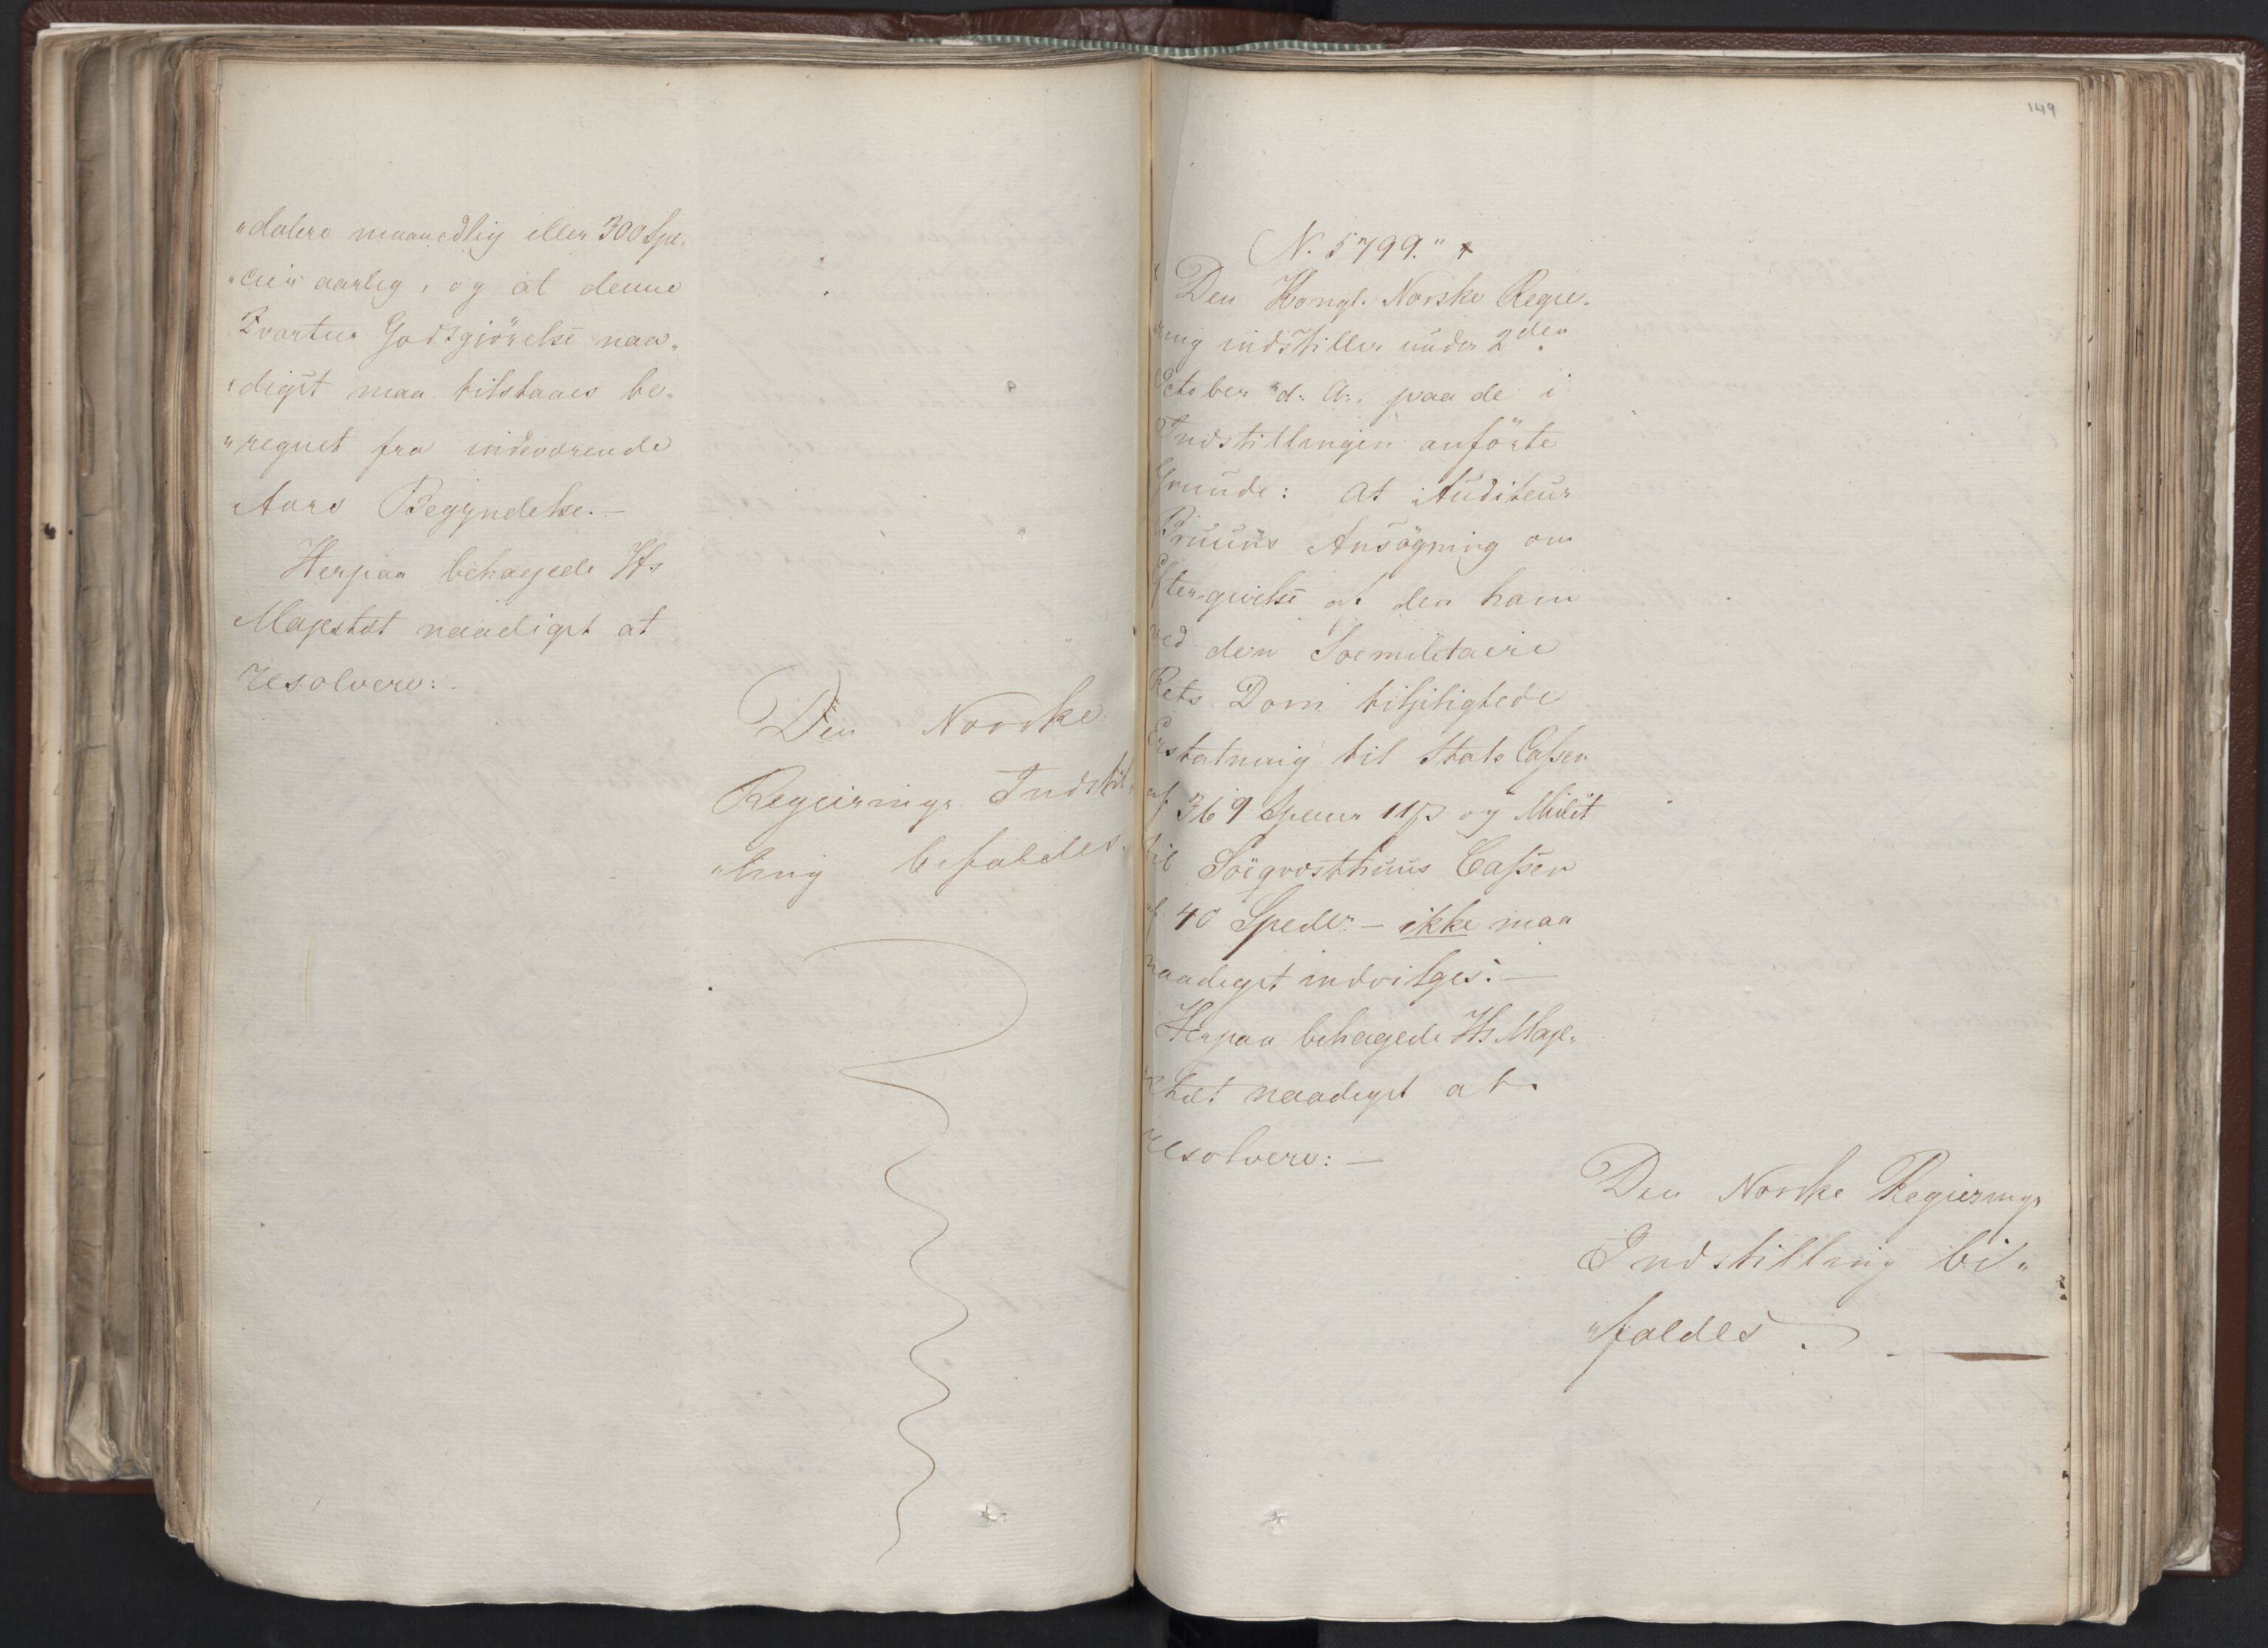 "dalere maanedlig eller 300 Spe„
„cier aarlig, og at denne
Qvarteer Godtgiörelse naa„
„digst maa tilstaaes be„
„regnet fra indeværende
Aars Begyndelse.—
Herpaa behagede Hs
Majestæt naadigst at
resolvere:-
Den Norske
Regjerings Indstil„
„ling bifaldes.
149
N. 5799."
Den Kongl. Norske Regie„
ring indstiller under 2den
October d. A., paa de i
Indstillingen anförte
Grunde: At Auditeur
Bruuns Ansögning om
Eftergivelse af den ham
ved den Söemilitaire
Rets Dom tilpligtede
Erstatning til Stats Cassen
af 369 Specier 11 ß og Mulct
til Söeqvæsthuus Cassen
af 40 Spedlr:— ikke maa
naadigst indvilges:—
Herpaa behagede Hs Maje„
stæt naadigst at
resolvere:—
Den Norske Regierings
Indstilling bi„
„faldes.